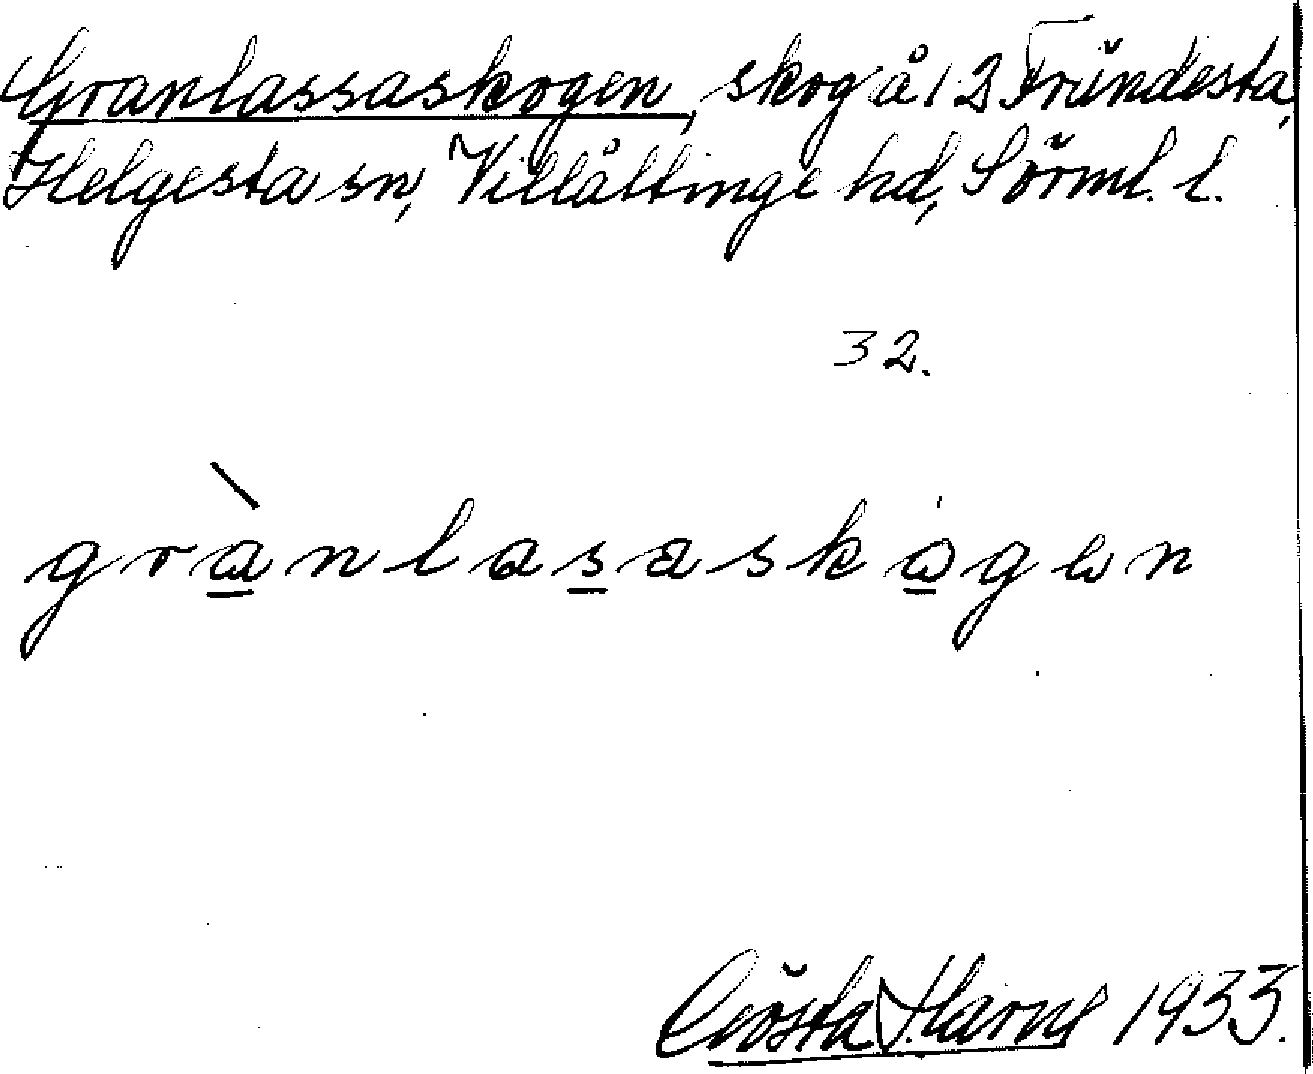 Granlassaskogen, skog å 12 Fründesta,
Helgesta sn, Villåttinge hd, Sörml. l.
32.
grànlasaskógen
Gösta Harne 1933.